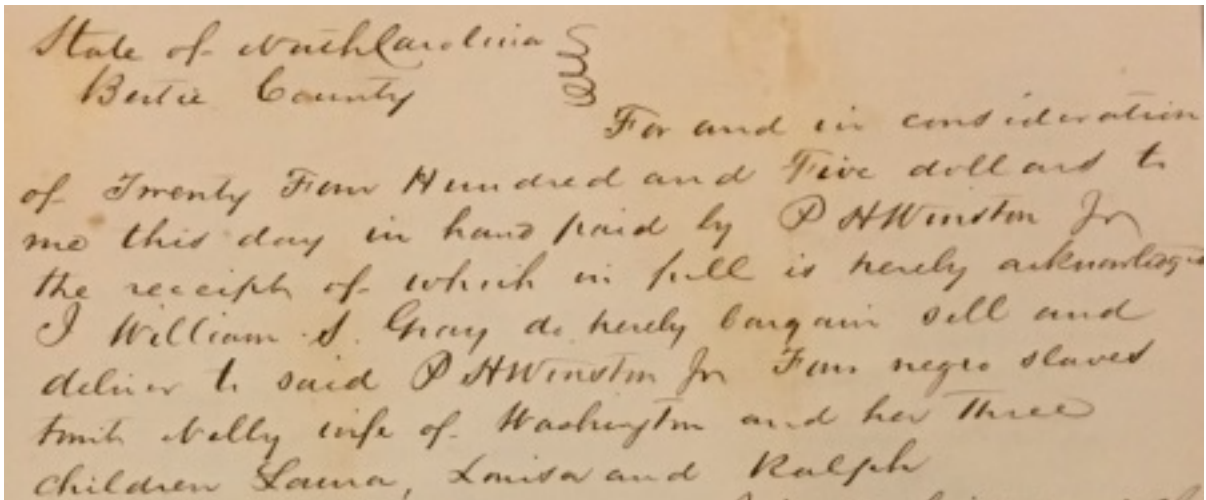 State of North Carolina
Bertie County
For and in consideration
of Twenty Four Hundred and Five dollars to
me this day in hand paid by P H Winston Jr
the receipt of which in full is hereby acknowledged
I William S. Gray do hereby bargain sell and
deliver to said P H Winston Jr Four negro slaves
towit Nelly wife of Washington and her three
children Laura, Louisa and Ralph